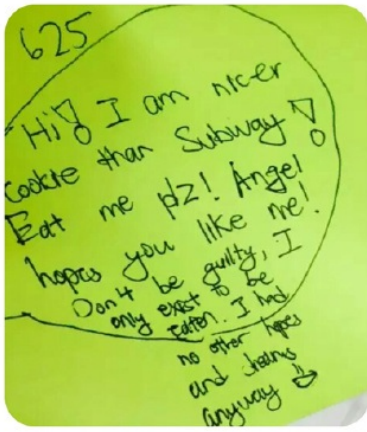 625
Hi! I am nic-er
cookie than Subway!
Eat me plz! Angel
hopes you like me!
Don't be guilty, I
only exist to be
eaten. I had
no other hopes
and dreams
anyway